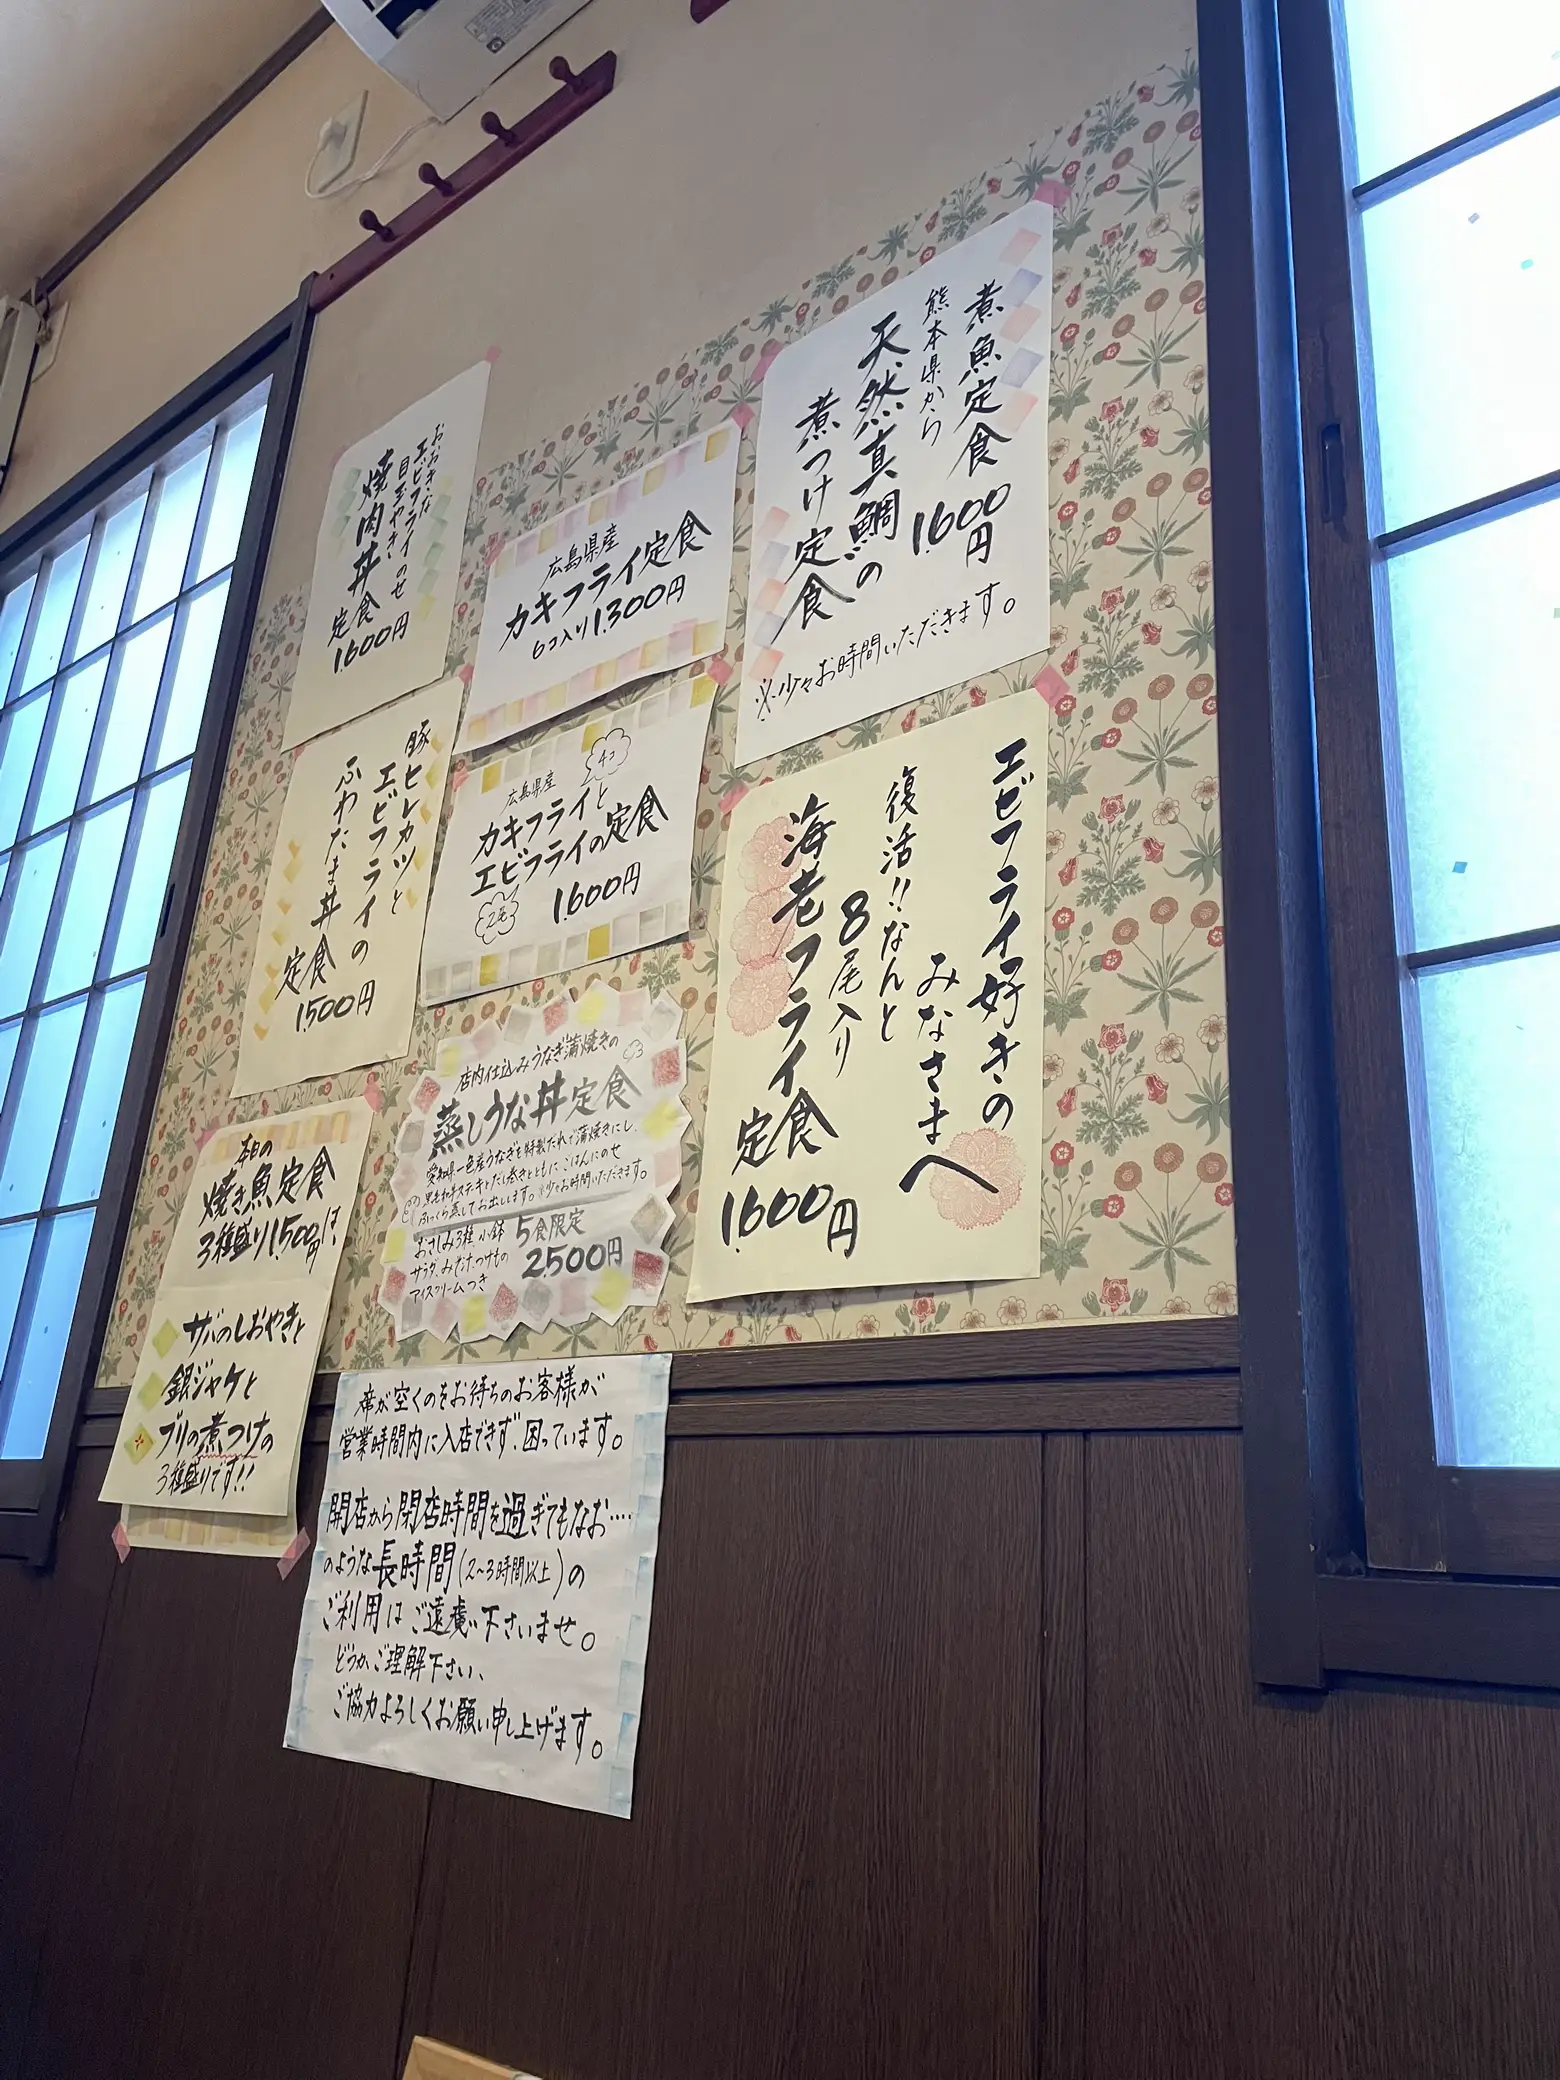 煮魚定食
1.600円
熊本県から
天然真鯛の
煮つけ定食
※少々お時間いただきます。
おおきな
エビフライのせ
目玉やき
焼肉丼
定食
1.600円
広島県産
カキフライ定食
6コ入り1.300円
豚ヒレカツと
エビフライの
ふわたま丼
定食
1.500円
広島県産
4コ
カキフライと
エビフライの定食
2尾
1.600円
エビフライ好きの
みなさまへ
復活!!なんと
8尾入り
海老フライ
定食
1.600円
店内仕込みうなぎ蒲焼きの
蒸しうな丼定食
愛知県一色産うなぎを特製だれで蒲焼きにし、
黒毛和牛ステーキとだし巻きとともにごはんにのせ
ふっくら蒸してお出しします。※少々お時間いただきます。
おさしみ3種、小鉢
サラダ、みそ汁、つけもの
アイスクリームつき
5食限定
2.500円
本日の
焼き魚定食
3種盛り1.500円は、
サバのしおやきと
銀ジャケと
ブリの煮つけの
3種盛りです!!
席が空くのをお待ちのお客様が
営業時間内に入店できず、困っています。
開店から閉店時間を過ぎてもなお‥‥
のような長時間(2~3時間以上)の
ご利用はご遠慮下さいませ。
どうかご理解下さい、
ご協力よろしくお願い申し上げます。